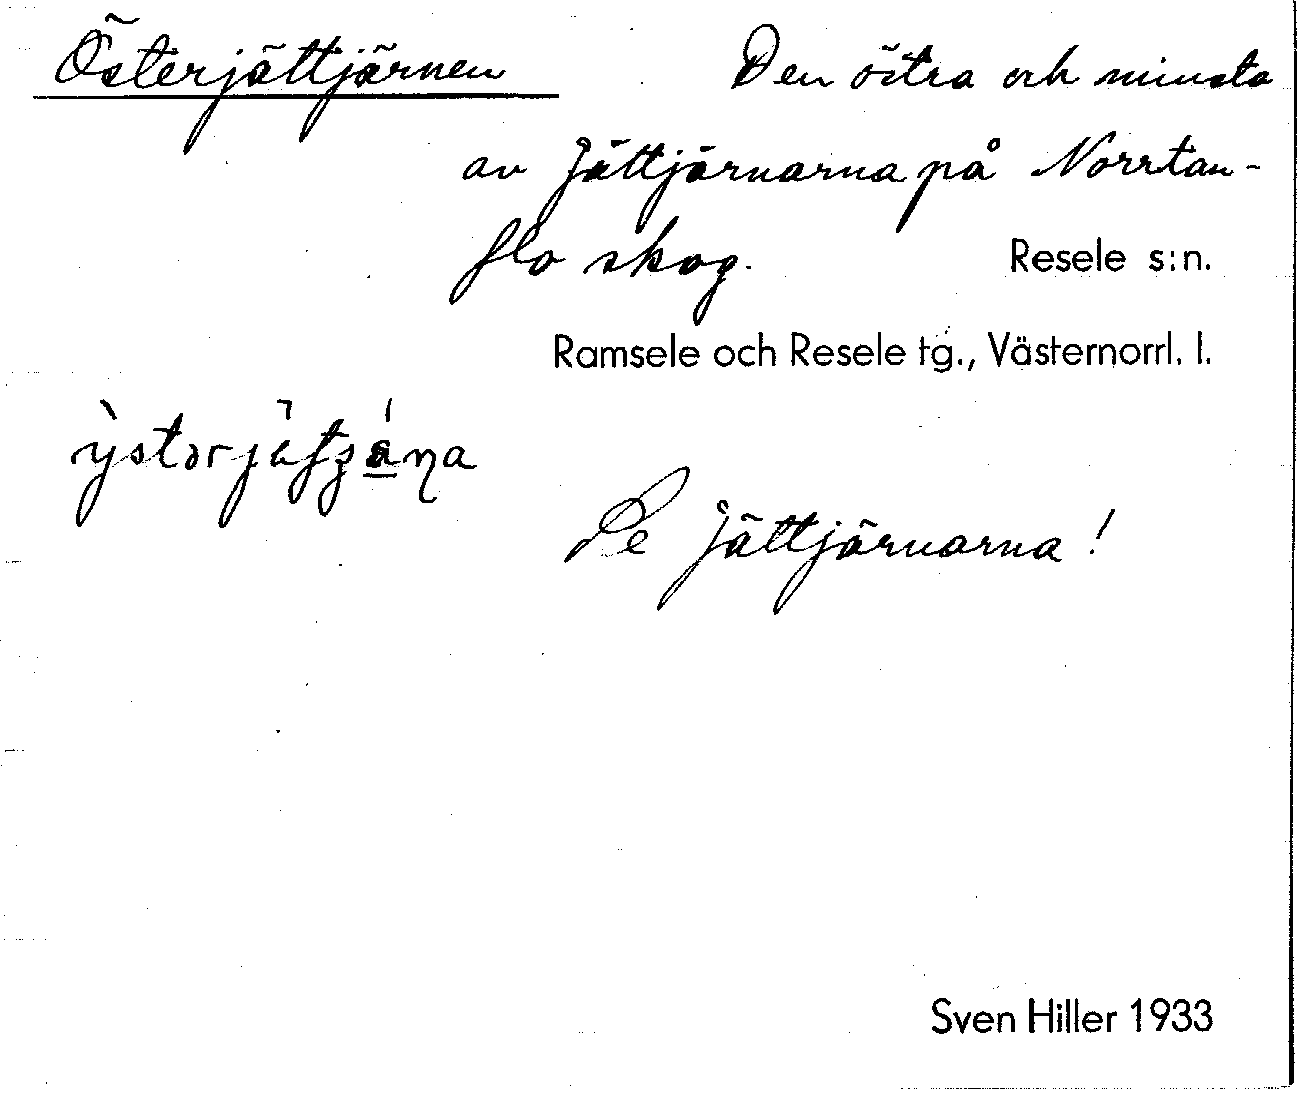 Österjättjärnen Den östra och minsta
av Jättjärnarna på Norrtan-
flo skog. Resele s:n.
Ramsele och Resele tg., Västernorrl. l.
Se Jättjärnarna!
Sven Hiller 1933